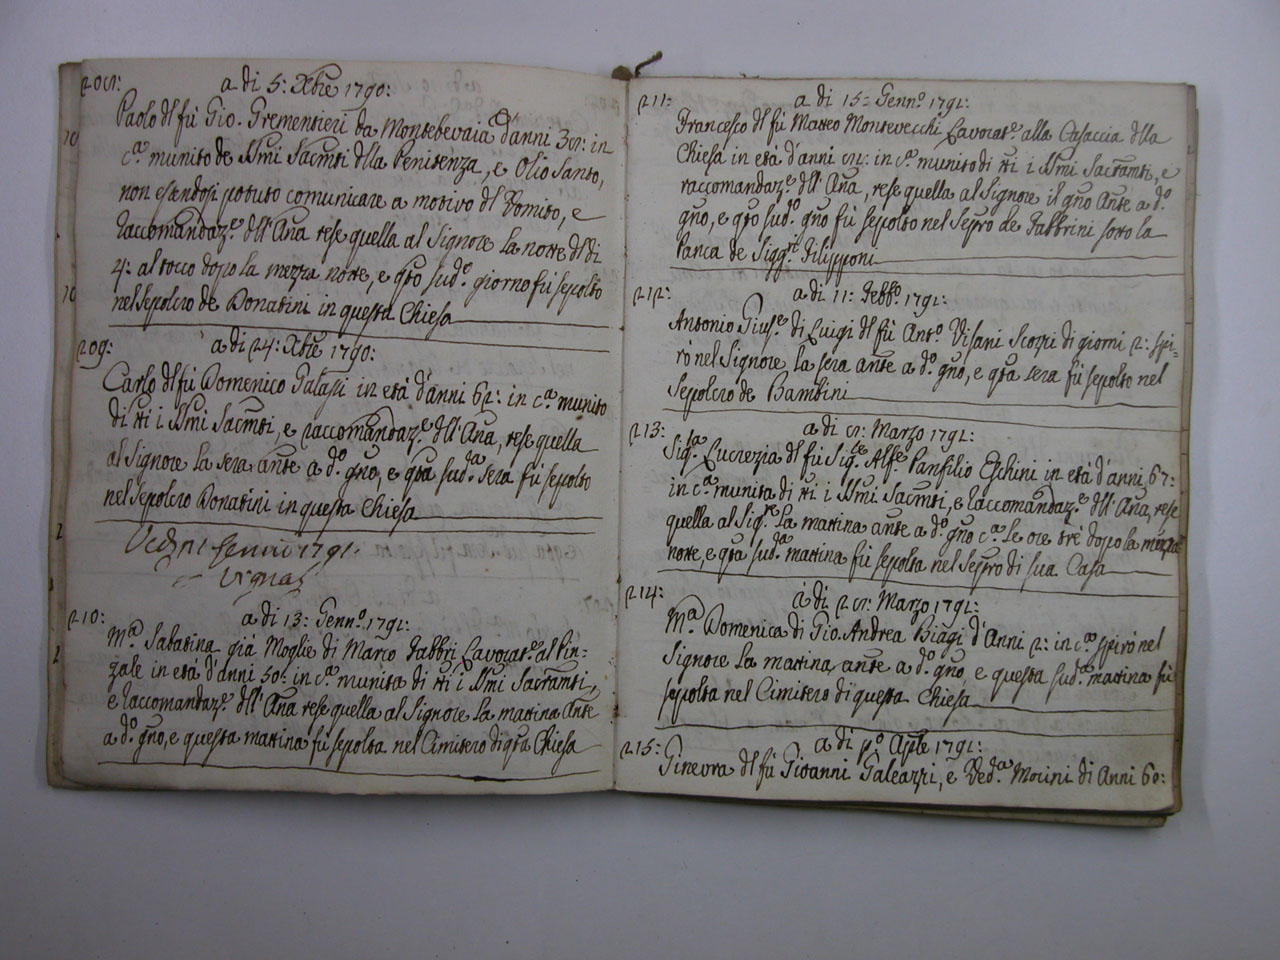 208: a di 5: Xbre 1790:
Paolo dl fù Gio. Grementieri da Montebevaia d'anni 38: in
c.ª munito de SSmi Sacmti dlla Penitenza, e Olio Santo,
non essendosi potuto comunicare a motivo dl Vomito, e
raccomandaz.e dll'Aña rese quella al Signore la notte dl dì
4: al tocco dopo la mezza notte, e qto sud.º giorno fù sepolto
nel Sepolcro de Donatini in questa Chiesa
209: a di 24: Xbre 1790:
Carlo dl fù Domenico Galassi in età d'anni 62: in c.ª munito
di tti i SSmi Sacmti, e raccomandaz.e dll'Aña, rese quella
al Signore la sera ante a d.º gño, e qta sud.ª sera fù sepolto
nel Sepolcro Donatini in questa Chiesa
1791.
210: a di 13: Genn.º 1791:
M.ª Sabatina già Moglie di Marco Fabbri Lavorat.e al Pin=
zale in età d'anni 50: in c.ª munita di tti i SSmi Sacramti,
e raccomandaz.e dll'Aña rese quella al Signore la mattina ante
a d.º gño, e questa mattina fù sepolta nel Cimitero di qta Chiesa
211: a di 15: Genn.º 1791:
Francesco dl fù Matteo Montevecchi Lavorat.e alla Casaccia dlla
Chiesa in età d'anni 58: in c.ª munito di tti i SSmi Sacramti, e
raccomandaz.e dll'Aña, rese quella al Signore il gño Ante a d.º
gño, e qto sud.º gño fù sepolto nel Seplro de Fabbrini sotto la
Panca de Sigg.ri Filipponi
212: a di 11: Febb.º 1791:
Antonio Gius.e di Luigi dl fù Ant.º Visani Scozzi di giorni 2: spi=
rò nel Signore la sera ante a d.º gño, e qta sera fù sepolto nel
Sepolcro de Bambini
213: a di 8: Marzo 1791:
Sig.ra Lucrezia dl fù Sig.e Alf.e Panfilio Eschini in età d'anni 67:
in c.ª munita di tti i SSmi Sacmti, e raccomandaz.e dll'Aña, rese
quella al Sig.re la mattina ante a d.º gño c.ª le ore tre dopo la mezza
notte, e qta sud.ª mattina fù sepolta nel Seplro di sua Casa
214: a di 28: Marzo 1791:
M.ª Domenica di Gio. Andrea Biagi d'Anni 2: in c.ª spirò nel
Signore la mattina ante a d.º gño, e questa sud.ª mattina fù
sepolta nel Cimitero di questa Chiesa
215: a di p.º Aple 1791:
Ginevra dl fù Giovanni Galeazzi, e Ved.ª Morini di Anni 60: